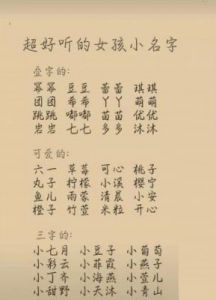 超好听的女孩小名字
叠字的:
幂幂 豆豆 蕾蕾 琪琪
团团 希希 丫丫 萌萌
跳跳 嘟嘟 苗苗 优优
岩岩 七七 多多 沐沐
可爱的:
六一 草莓 可心 桃子
丸子 柠檬 小溪 樱宁
鱼儿 雨蒙 小清 小安
橙子 竹萱 米粒 开心
三字的:
小七月 小豆子 小葡萄
小彩云 小菲霞 小燕子
小丁香 小海燕 小萱儿
小甜野 小天沐 小青山